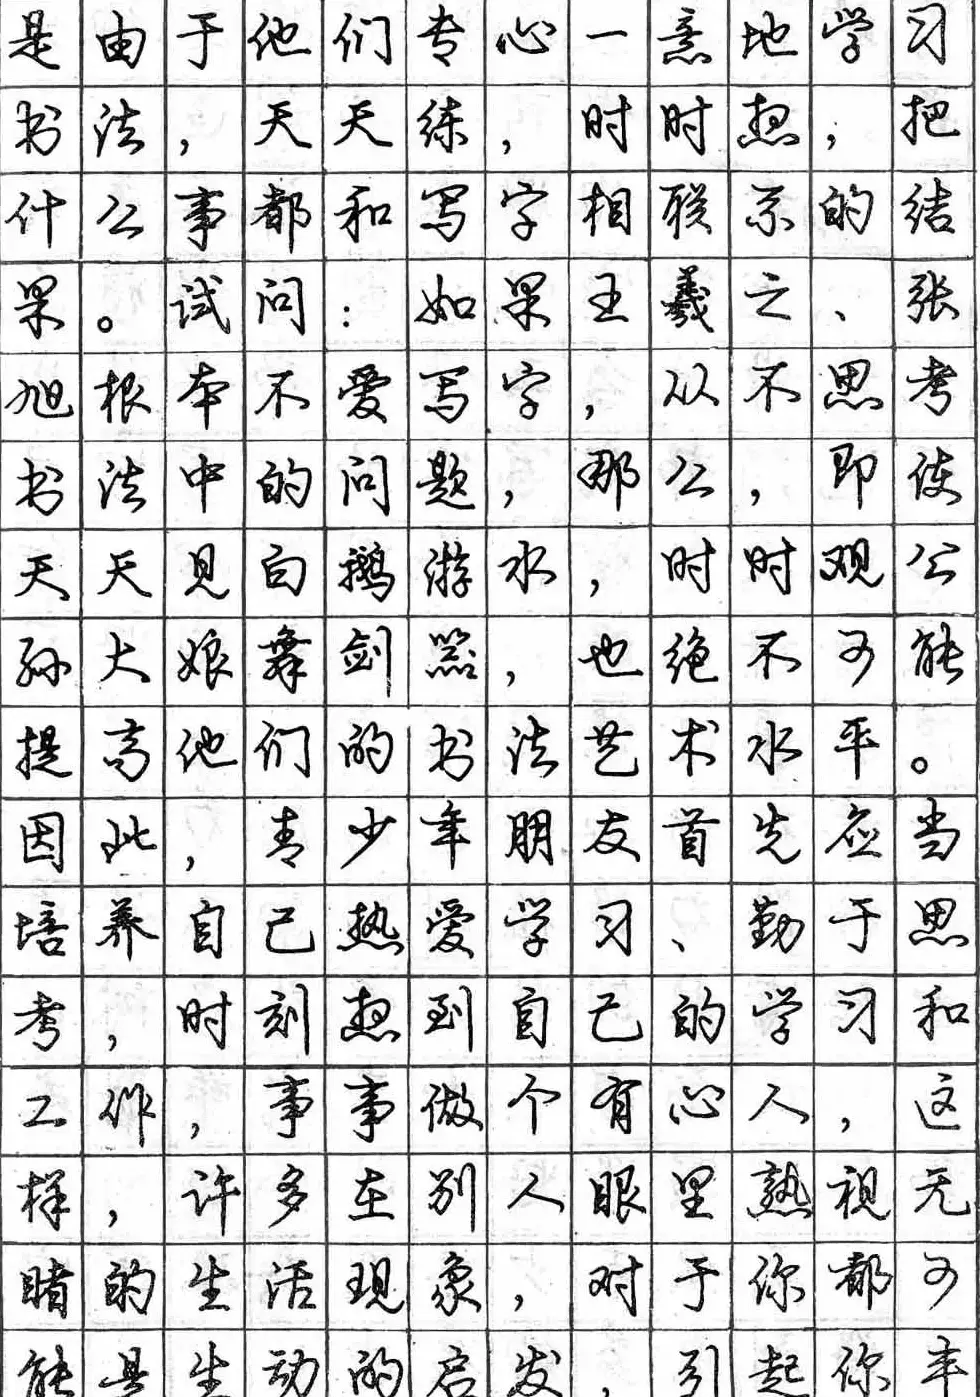 是由于他们专心一意地学习
书法，天天练，时时想，把
什么事都和写字相联系的结
果。试问：如果王羲之、张
旭根本不爱写字，从不思考
书法中的问题，那么，即使
天天见白鹅游水，时时观公
孙大娘舞剑器，也绝不可能
提高他们的书法艺术水平。
因此，青少年朋友首先应当
培养自己热爱学习、勤于思
考，时刻想到自己的学习和
工作，事事做个有心人，这
样，许多在别人眼里熟视无
睹的生活现象，对于你都可
能是生动的启发，引起你丰